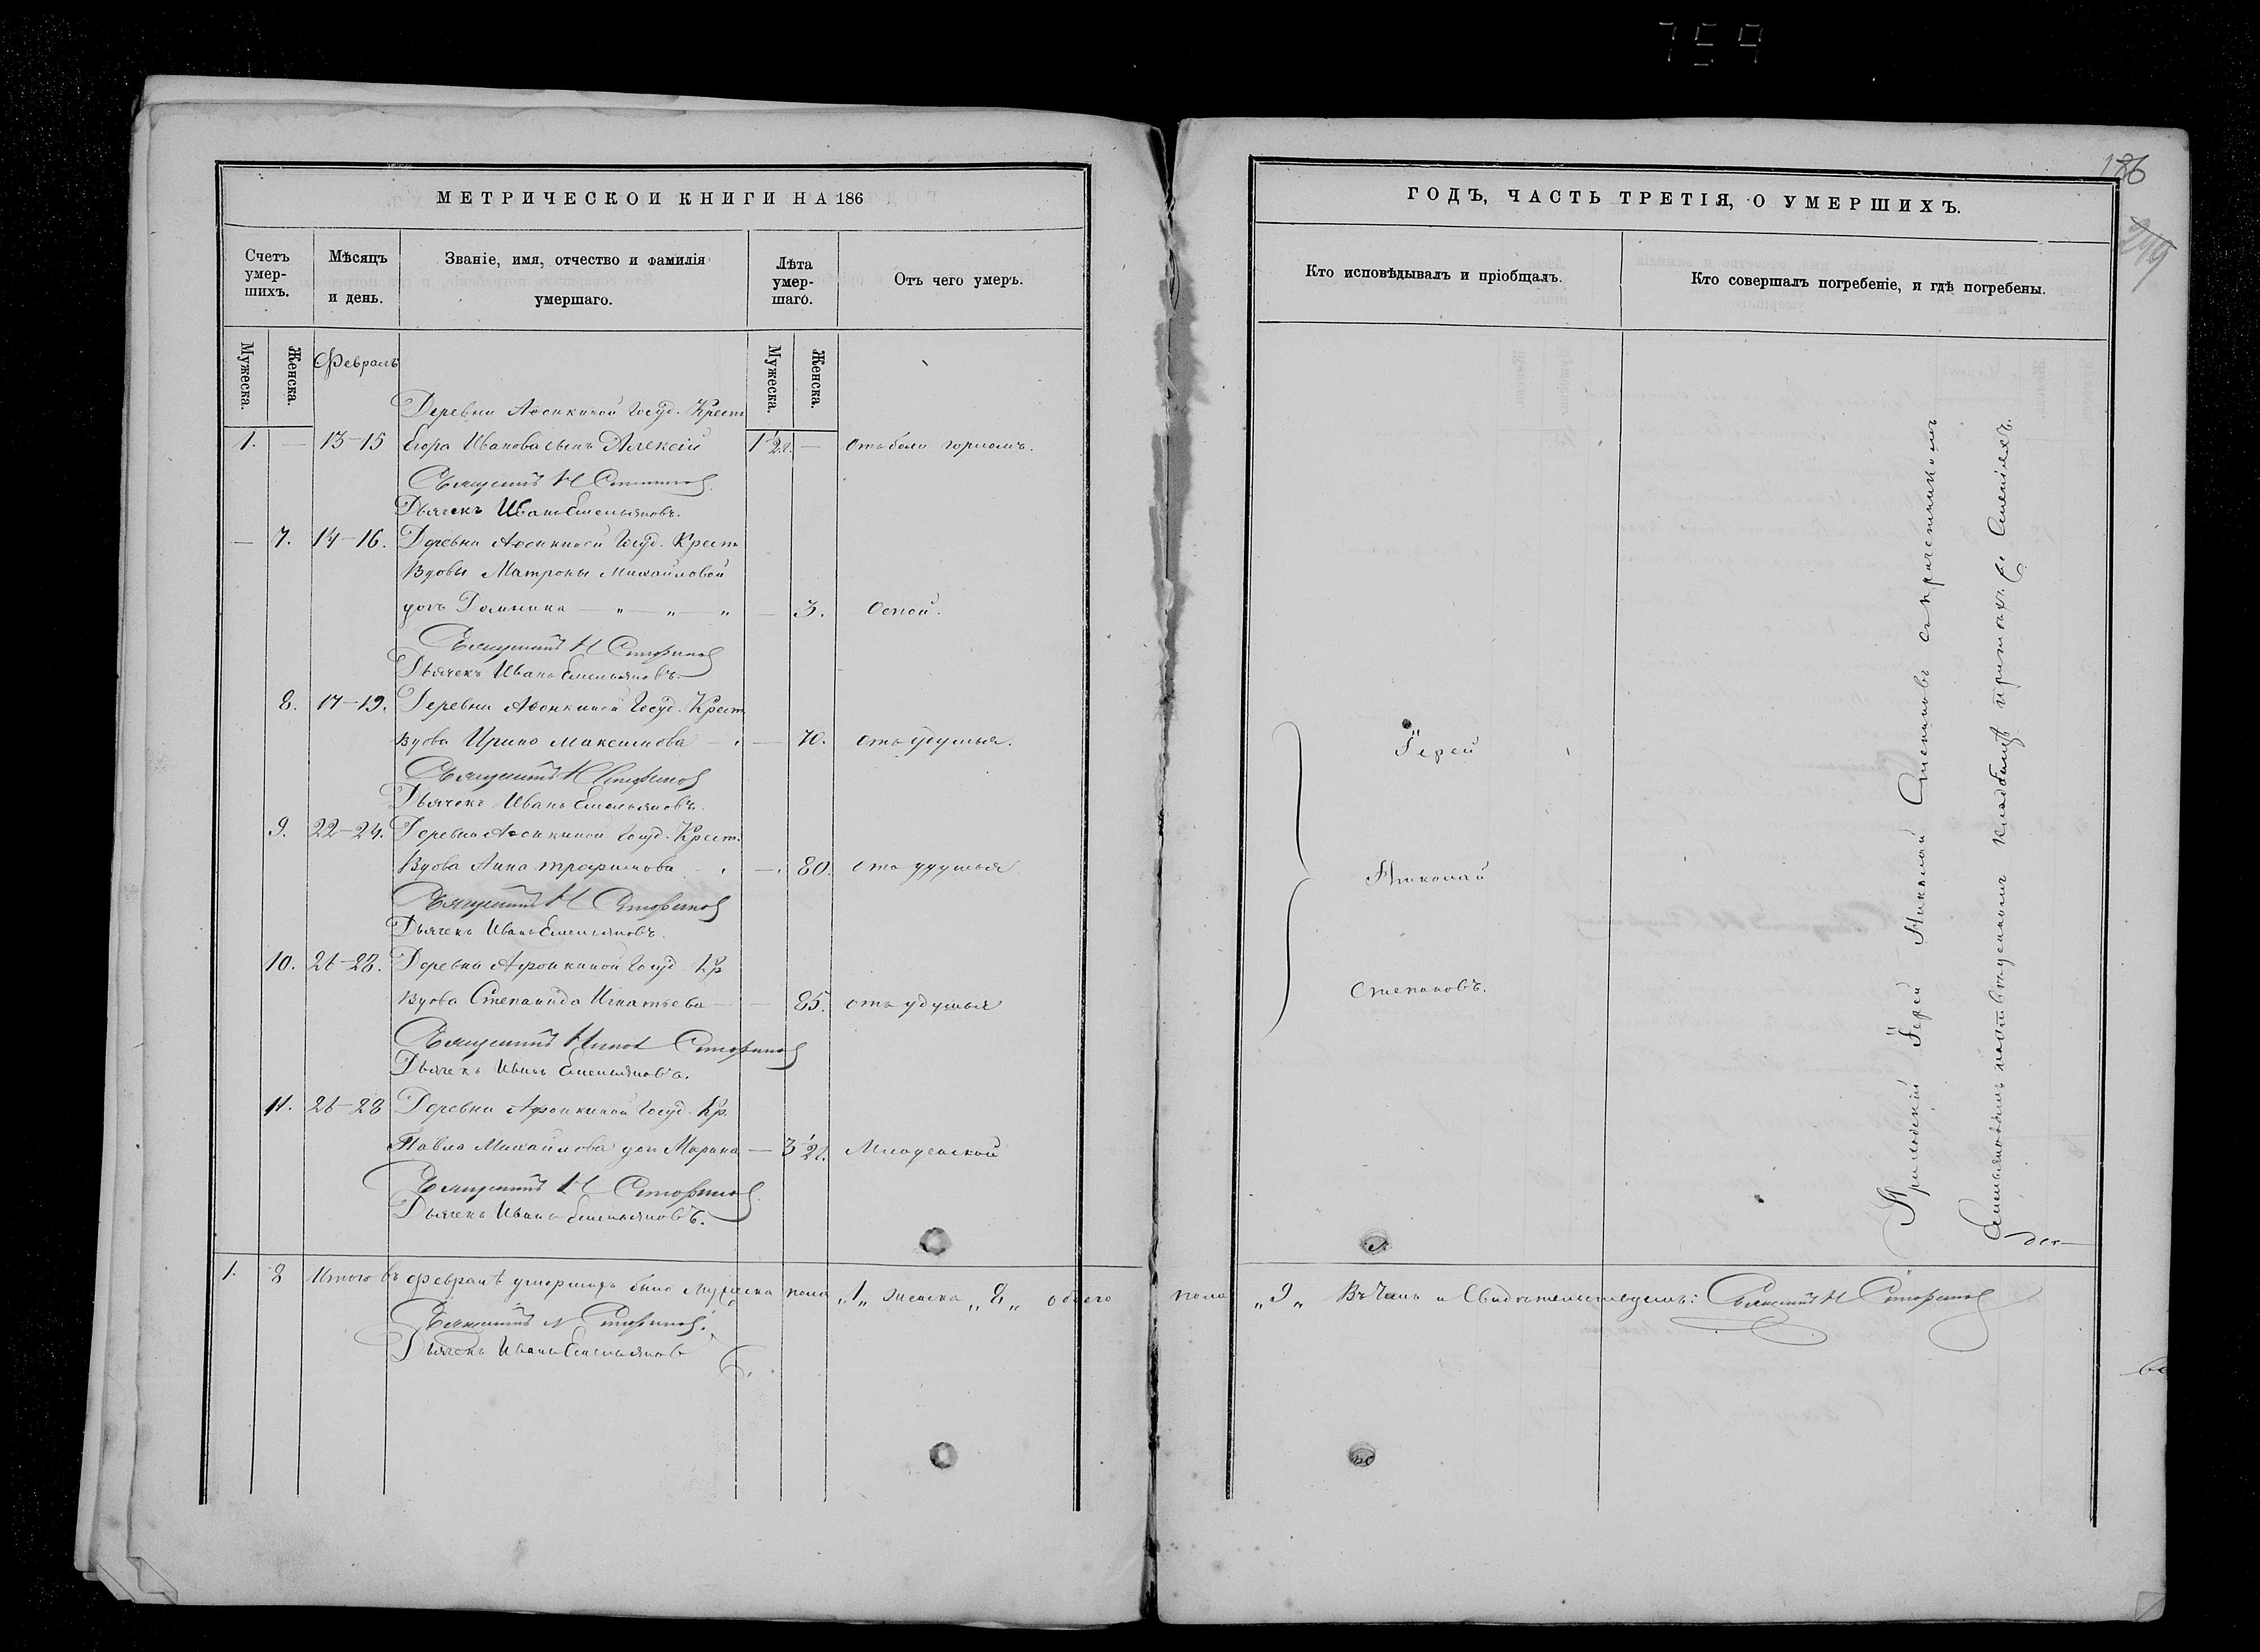 759
186
249
МЕТРИЧЕСКОИ КНИГИ НА 186
Счетъ умер-шихъ.
Мѣсяцъ и день.
Званіе, имя, отчество и фамилія умершаго.
Лѣта умер-шаго.
Отъ чего умеръ.
Мужеска.
Женска.
Февраль
Мужеска.
Женска.
Деревни Афонкиной Госуд. Крест
1. — 13-15 Егора Иванова сынъ Алексій 1 1/2 г. — отъ боли горломъ.
Священникъ Н Стефановъ
Дьячекъ Иванъ Емельяновъ.
— 7. 14-16. Деревни Афонкиной Госуд. Крест
Вдовы Матроны Михайловой
дочь Домника — „ — „ — „ — 3. Оспой.
Священникъ Н Стефановъ
Дьячекъ Иванъ Емельяновъ.
8. 17-19. Деревни Афонкиной Госуд. Крест
Вдова Ирина Максимова — 70. отъ удушья.
Священникъ Н Стефановъ
Дьячекъ Иванъ Емельяновъ.
9. 22-24. Деревни Афонкиной Госуд. Крест.
Вдова Анна Трофимова — 80. отъ удушья
Священникъ Н Стефановъ
Дьячекъ Иванъ Емельяновъ.
10. 26-28. Деревни Афонкиной Госуд. Кр
Вдова Степанида Игнатьева — — 85. отъ удушья
Священникъ Стефановъ
Дьячекъ Иванъ Емельяновъ.
11. 26-28 Деревни Афонкиной Госуд. Кр.
Павла Михайлова доч Марина — 3 1/2 г. Младенской
Священникъ Н Стефановъ
Дьячекъ Иванъ Емельяновъ.
1. 8 Итого въ февралѣ умершихъ было мужеска пола „1„ женска „8„ обоего
Священникъ Н Стефановъ.
Дьячекъ Иванъ Емельяновъ
ГОДЪ, ЧАСТЬ ТРЕТІЯ, О УМЕРШИХЪ.
Кто исповѣдывалъ и пріобщалъ.
Кто совершалъ погребеніе, и гдѣ погребены.
Іерей
Николай
Степановъ.
Приходскій Іерей Николай Степановъ съ причетникомъ
Емельяновымъ на отведенномъ кладбищѣ
пола „9„ Въ чемъ и Свидѣтельствуемъ: Священникъ Н Стефановъ